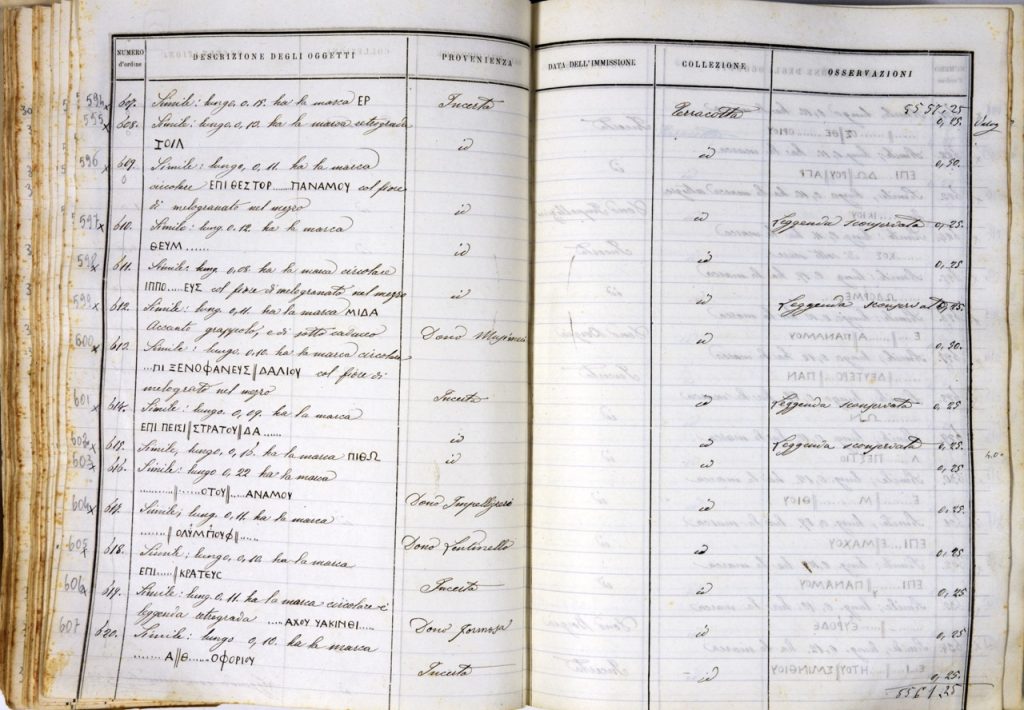 NUMERO d'ordine DESCRIZIONE DEGLI OGGETTI PROVENIENZA DATA DELL'IMMISSIONE COLLEZIONE OSSERVAZIONI
5557.25
594 607. Simile: lungo, 0,18. ha la marca ΕΡ Incerta Terracotta 0,25.
595 608. Simile: lungo, 0,10. ha la marca retrograda
ΙΟΙΛ id id 0,50.
596 609. Simile: lungo, 0,11. ha la marca
circolare ΕΠΙ ΘΕΣΤΟΡ.....ΠΑΝΑΜΟΥ col fiore
di melogranato nel mezzo id id Leggenda sconservata 0,25.
597 610. Simile: lung. 0,12. ha la marca
ΘΕΥΜ ...... id id 0,25
598 611. Simile: lung. 0,08. ha la marca circolare
ΙΠΠΟ....ΕΥΣ col fiore di melogranato nel mezzo id id Leggenda sconservata 0,25.
599 612. Simile: lung. 0,11. ha la marca ΜΙΔΑ
Accanto grappolo, e di sotto caduceo Dono id 0,50.
600 613. Simile: lungo, 0,10. ha la marca circolare
....ΠΙ ΞΕΝΟΦΑΝΕΥΣ|ΔΑΛΙΟΥ col fiore di
melograto nel mezzo Incerta id Leggenda sconservata 0,25
601 614. Simile: lungo, 0,09. ha la marca
ΕΠΙ ΠΕΙΣΙ|ΣΤΡΑΤΟΥ|ΔΑ ...... id id Leggenda sconservata 0,25.
602 615. Simile, lungo, 0,16. ha la marca ΠΙΘΩ id id 0,25
603 616. Simile: lungo 0,22 ha la marca
.........|.......ΟΤΟΥ|.....ΑΝΑΜΟΥ Dono Impellizzeri id 0,25.
604 617. Simile; lung. 0,11. ha la marca
.......|ΟΛΥΜΠΟΥΦ|...... Dono id 0,25
605 618. Simile: lungo, 0,10. ha la marca
ΕΠΙ.....|ΚΡΑΤΕΥΣ Incerta id 0,25.
606 619. Simile: lung. 0,11. ha la marca circolare e
leggenda retrograda .....ΑΧΟΥ ΥΑΚΙΝΘΙ..... Dono Formosa id 0,25
607 620. Simile: lungo 0,10. ha la marca
...... Α|Θ... ΟΦΟΡΙΟΥ Incerta id 0,25.
5561.25